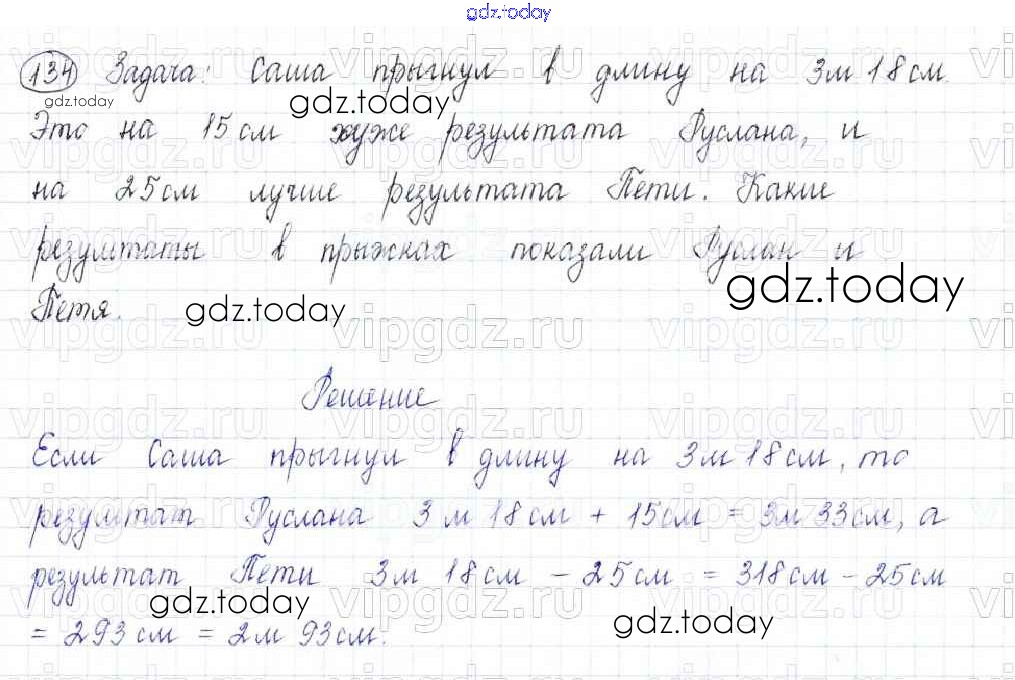 gdz.today
134 Задача: Саша прыгнул в длину на 3м 18см.
gdz.today
gdz.today
Это на 15см хуже результата Руслана, и
на 25см лучше результата Пети. Какие
результаты в прыжках показали Руслан и
gdz.today
Петя.
gdz.today
Решение
Если Саша прыгнул в длину на 3м 18см, то
результат Руслана 3м 18см + 15см = 3м 33см, а
результат Пети 3м 18см - 25см = 318см - 25см
gdz.today
gdz.today
= 293см = 2м 93см.
vipgdz.ru